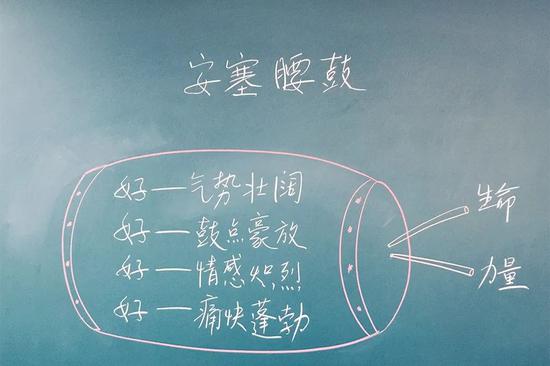 安塞腰鼓
好—气势壮阔
好—鼓点豪放
好—情感炽烈
好—痛快蓬勃
生命
力量